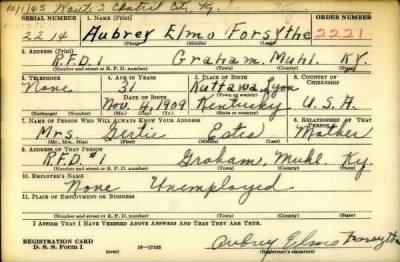 10/1/45 Route 2 Central City, Ky.
SERIAL NUMBER 1. NAME (Print) ORDER NUMBER
2214 Aubrey Elmo Forsythe 2221
(First) (Middle) (Last)
2. ADDRESS (Print)
R.F.D. 1 Graham. Muhl. Ky.
(Number and street or R. F. D. number) (Town) (County) (State)
3. TELEPHONE 4. AGE IN YEARS 5. PLACE OF BIRTH 6. COUNTRY OF CITIZENSHIP
None 31 Kuttawa, Lyon
DATE OF BIRTH (Town) (County)
Nov. 4, 1909 Kentucky U.S.A.
(Exchange) (Number) (Mo.) (Day) (Yr.) (State or country)
7. NAME OF PERSON WHO WILL ALWAYS KNOW YOUR ADDRESS 8. RELATIONSHIP OF THAT PERSON
Mrs. Gertie Estie Mother
(Mr., Mrs., Miss) (First) (Middle) (Last)
9. ADDRESS OF THAT PERSON
R.F.D. #1 Graham, Muhl. Ky.
(Number and street or R. F. D. number) (Town) (County) (State)
10. EMPLOYER'S NAME
None Unemployed
11. PLACE OF EMPLOYMENT OR BUSINESS
(Number and street or R. F. D. number) (Town) (County) (State)
I AFFIRM THAT I HAVE VERIFIED ABOVE ANSWERS AND THAT THEY ARE TRUE.
REGISTRATION CARD
D. S. S. Form 1 (over) 16—17105 Aubrey Elmo Forsythe
(Registrant's signature)